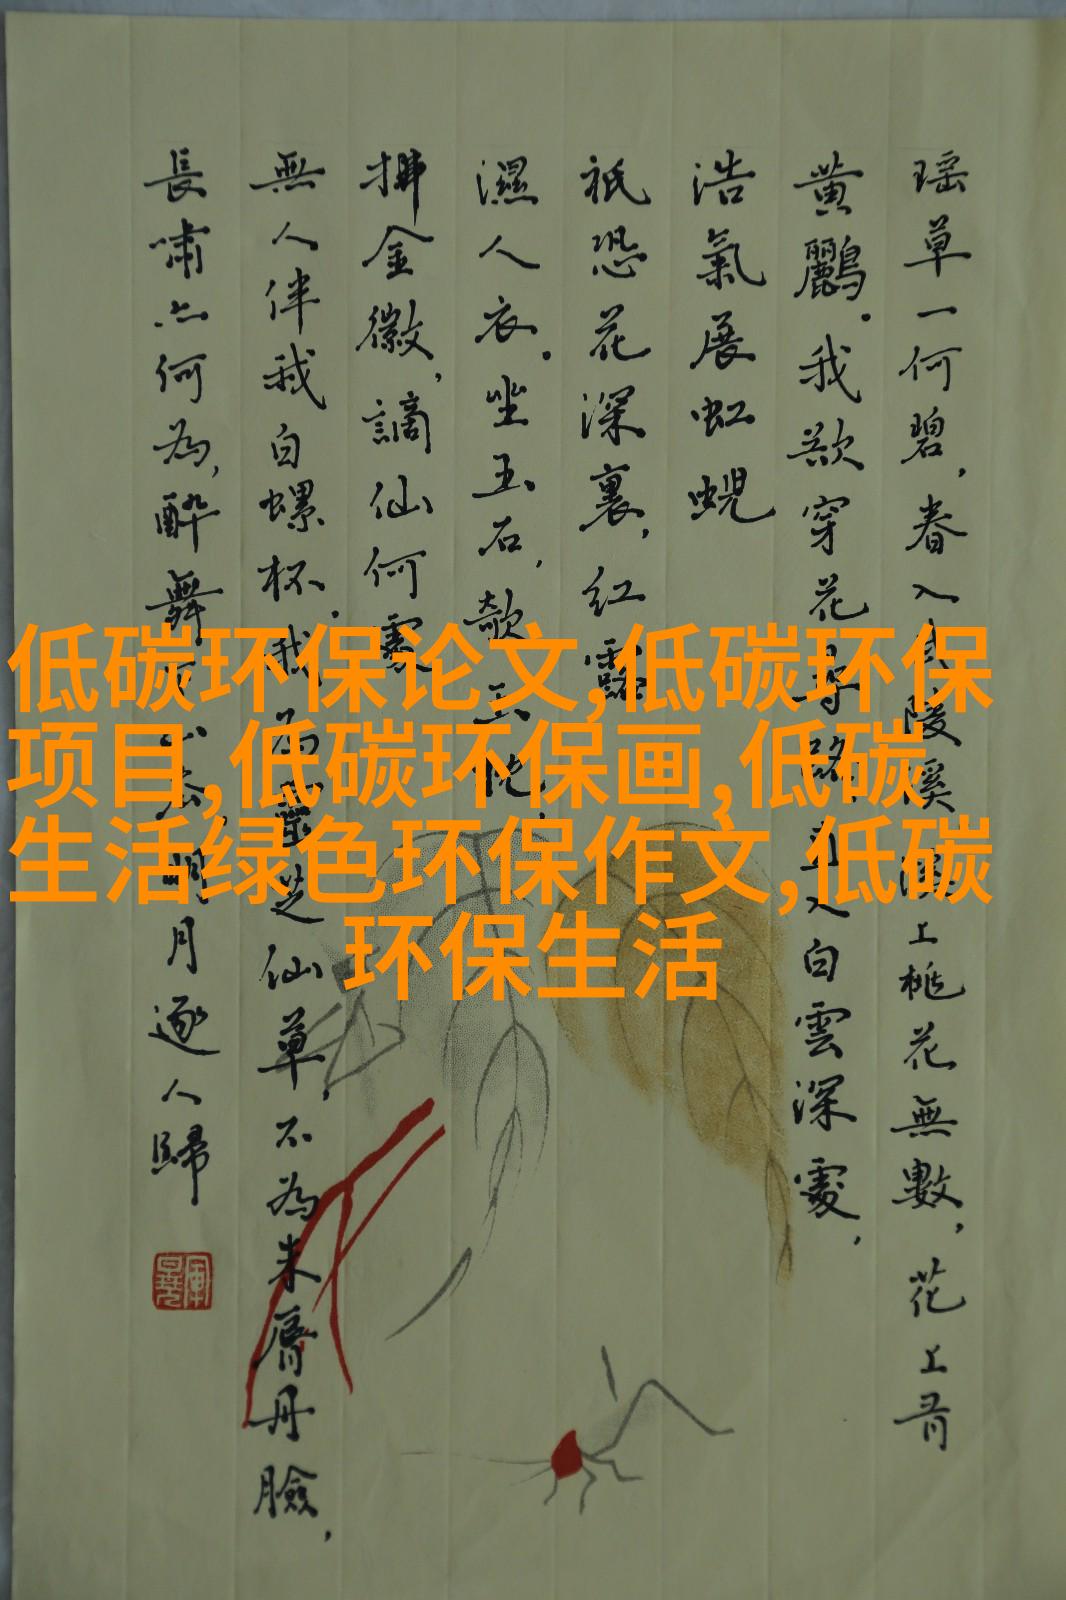 瑶草一何碧,春入武陵溪溪上桃花無數,花上有
黄鸝。我欲穿花尋路,直入白雲深處,
浩氣展虹蜺
祇恐花深裏,红露
濕人衣。坐玉石,欹玉枕
拂金徽,謫仙何處
無人伴我白螺杯。我為靈芝仙草,不為朱脣丹臉,
長嘯亦何為,醉舞下山去,明月逐人歸
低碳环保论文,低碳环保
项目,低碳环保画,低碳
生活绿色环保作文,低碳
环保生活